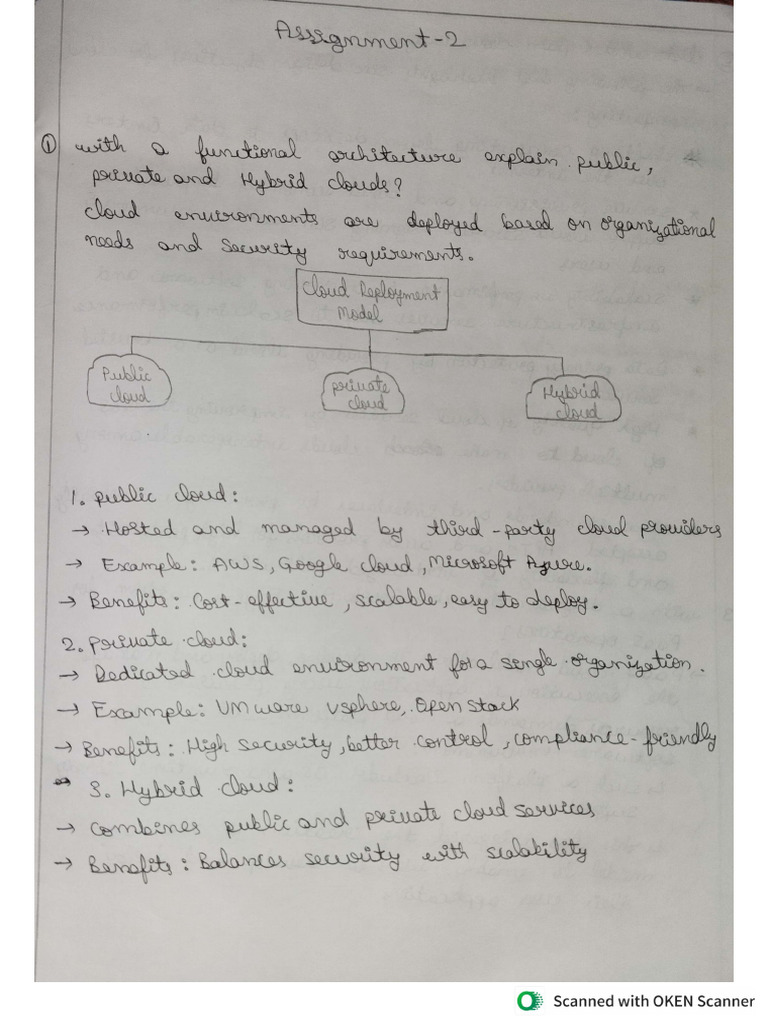 Assignment-2
① with a functional architecture explain public,
private and Hybrid clouds?
cloud environments are deployed based on organizational
needs and security requirements.
Cloud Deployment
Model
Public
cloud
private
cloud
Hybrid
cloud
1. public cloud:
→ Hosted and managed by third-party cloud providers
→ Example: AWS, Google cloud, Microsoft Azure.
→ Benefits: Cost-effective, scalable, easy to deploy.
2. private cloud:
→ Dedicated cloud environment for a single organization.
→ Example: VM ware vsphere, Open stack
→ Benefits: High security, better control, compliance-friendly
3. Hybrid cloud:
→ combines public and private cloud services
→ Benefits: Balances security with scalability
Scanned with OKEN Scanner